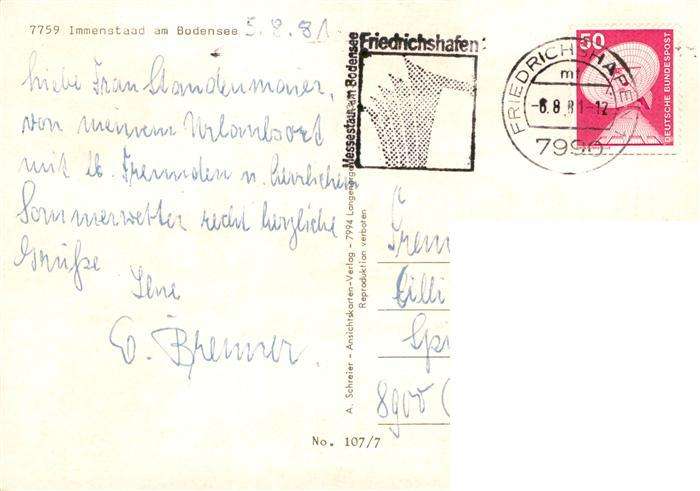 7759 Immenstaad am Bodensee 5.8.81.
Liebe Frau Standenmaier,
von meinem Urlaubsort
mit lb. Freunden u. herrlichem
Sommerwetter recht herzliche
Grüße
Ihre
E. Brenner.
Messestadt am Bodensee
Friedrichshafen
FRIEDRICHSHAFEN
m
-6.8.81-12
7990
50
DEUTSCHE BUNDESPOST
A. Schreier - Ansichtskarten-Verlag - 7994 Langenargen
Reproduktion verboten
Cilli
8900
No. 107/7